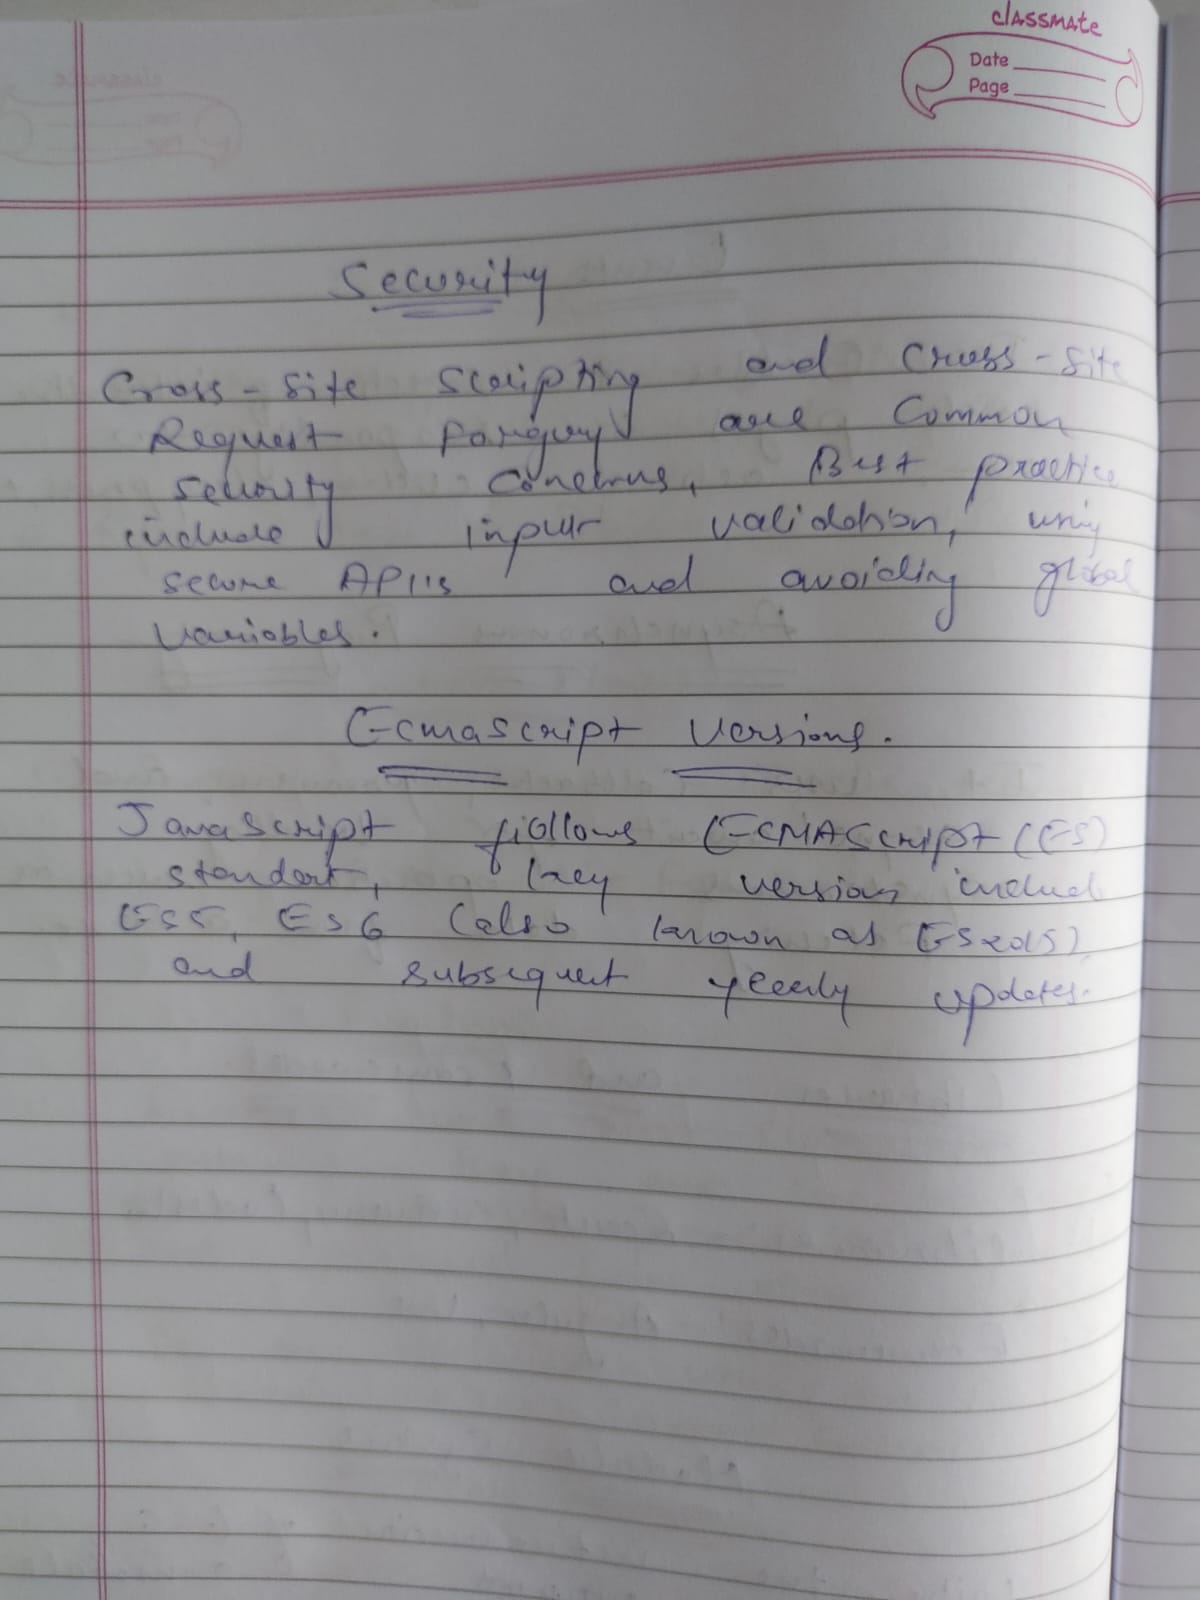 classmate
Date
Page
Security
Cross-Site Scripting and Cross-Site
Request Forgery are Common
Security Concerns, Best practice
include input validation, using
secure API's and avoiding global
variables.
Ecmascript Versions.
JavaScript follows ECMAScript (ES)
standart, key version includ
ES5, ES6 (also known as ES2015),
and subsequent yeerly updates.